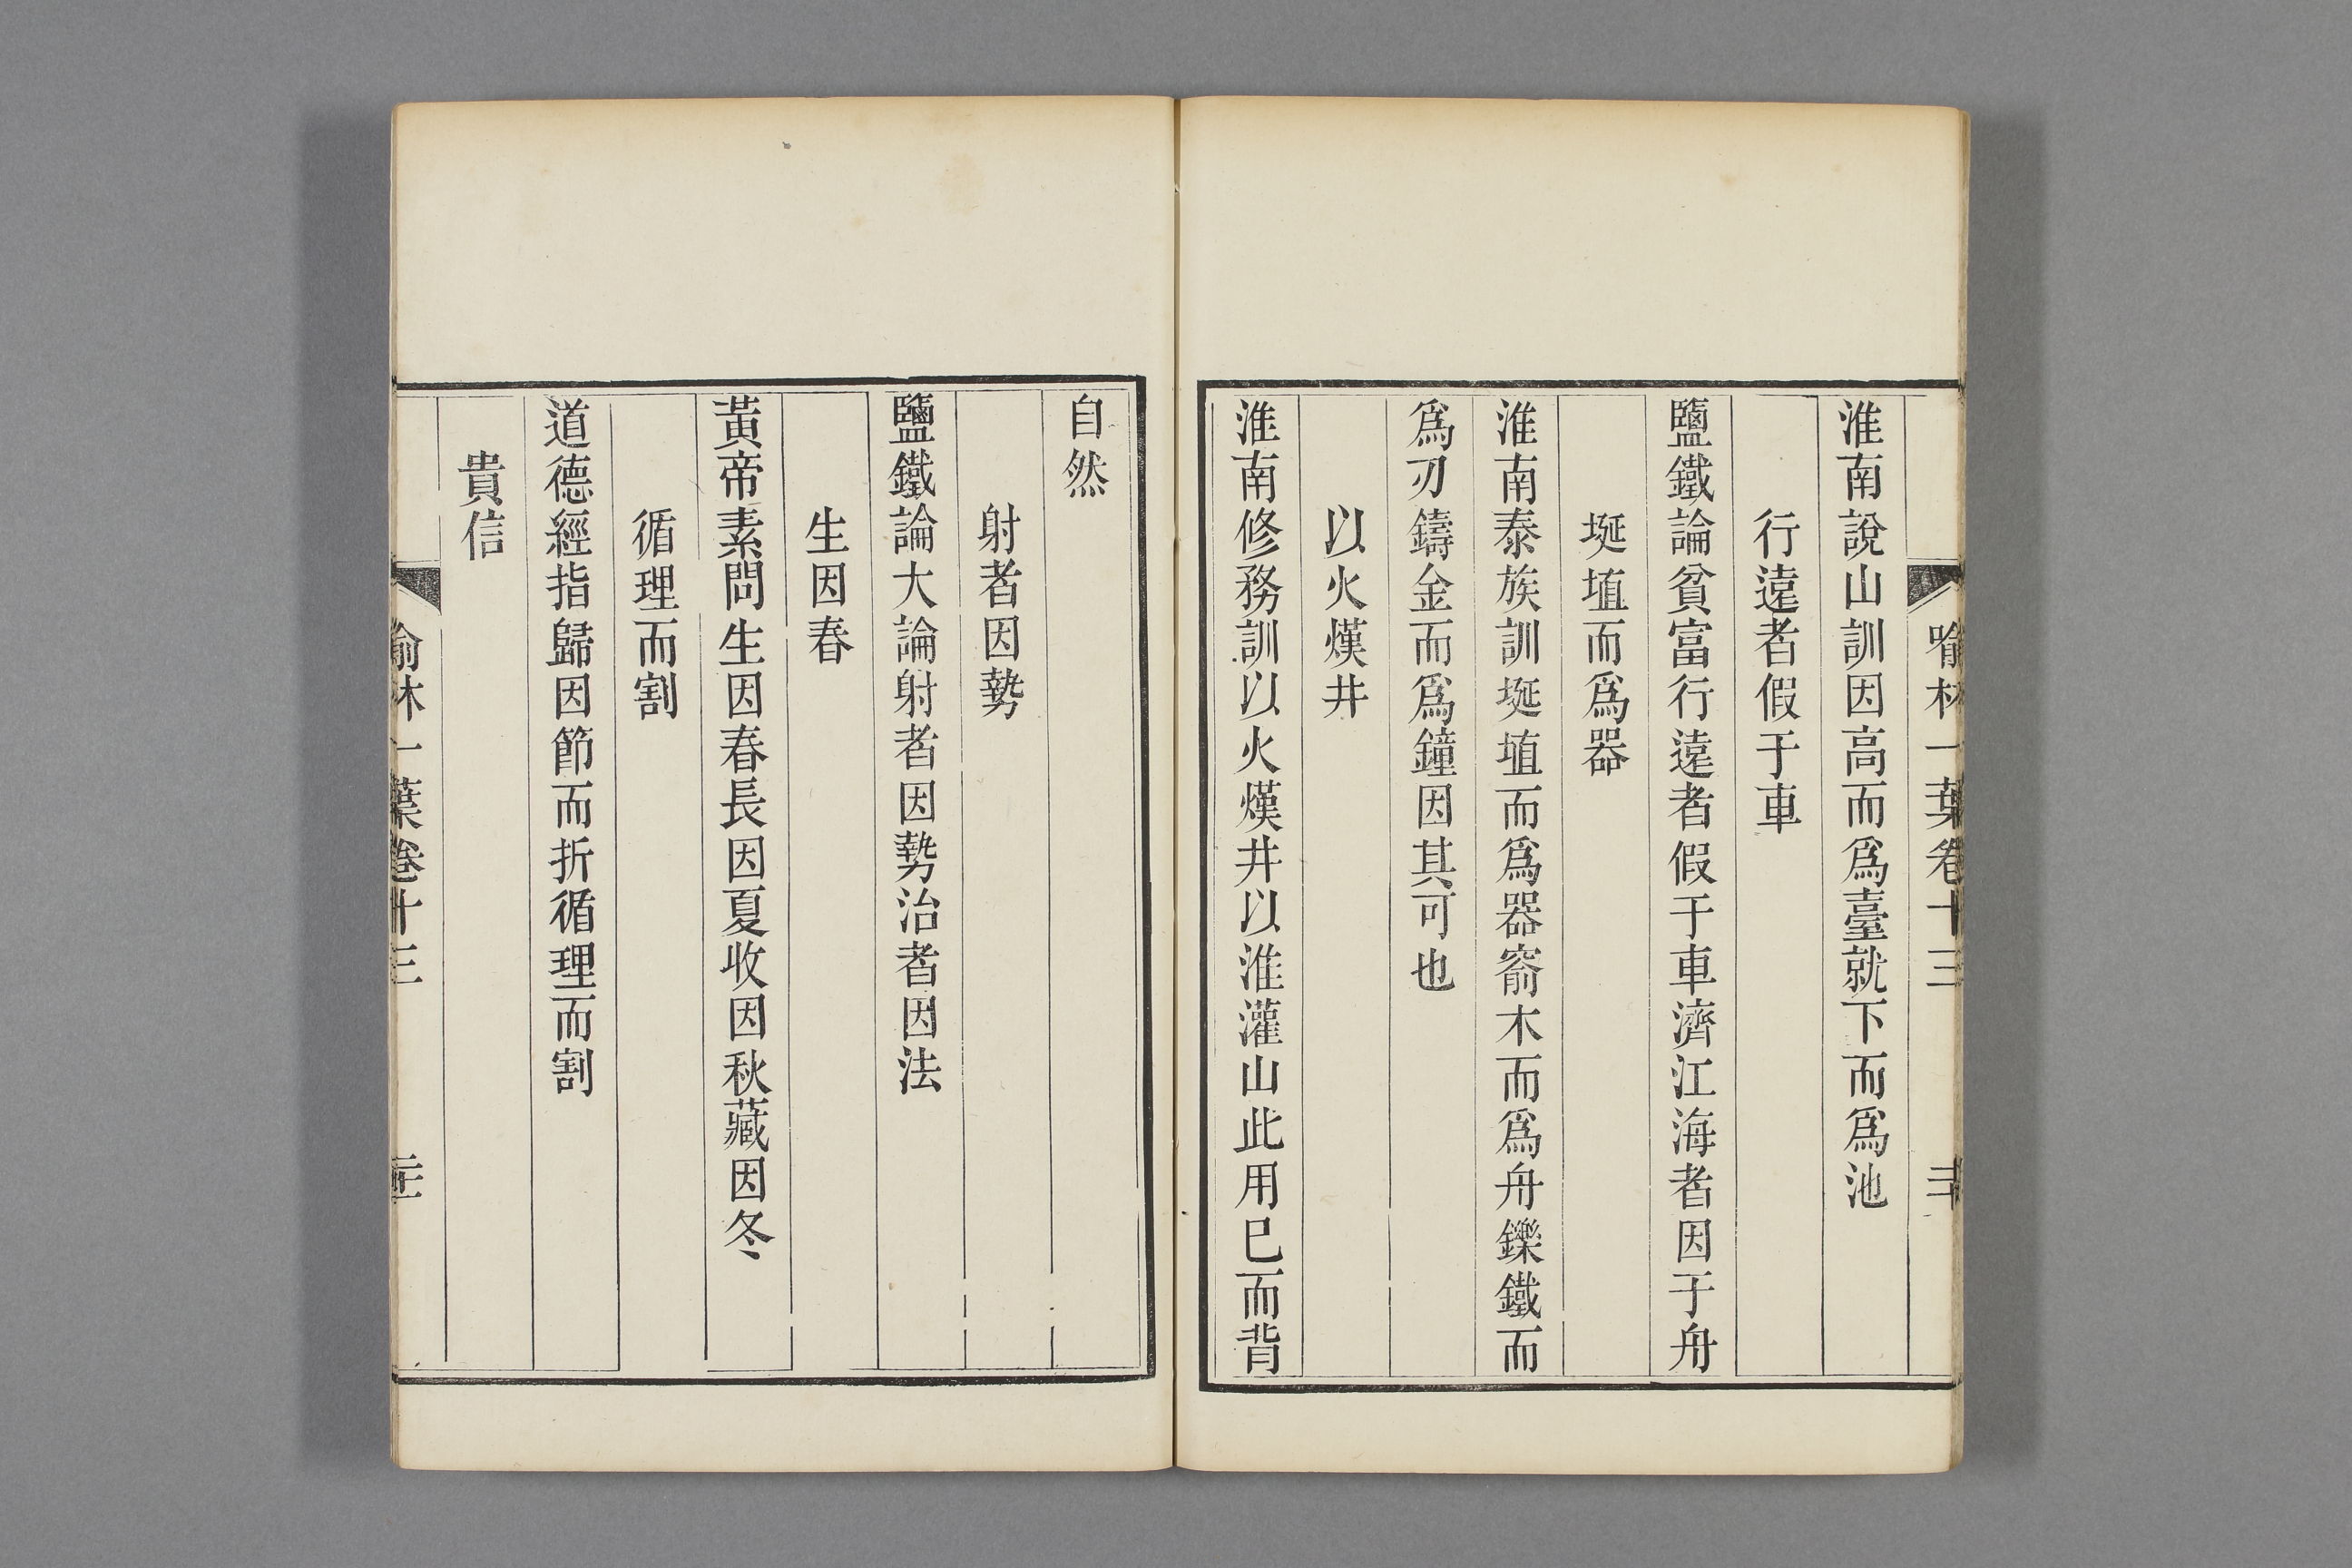 喻林一葉卷十三
二十
淮南說山訓因高而爲臺就下而爲池
行遠者假于車
鹽鐵論貧富行遠者假于車濟江海者因于舟
埏埴而爲器
淮南泰族訓埏埴而爲器窬木而爲舟鑠鐵而
爲刃鑄金而爲鐘因其可也
以火熯井
淮南修務訓以火熯井以淮灌山此用巳而背
自然
射者因勢
鹽鐵論大論射者因勢治者因法
生因春
黃帝素問生因春長因夏收因秋藏因冬
循理而割
道德經指歸因節而折循理而割
貴信
喻林一葉卷十三